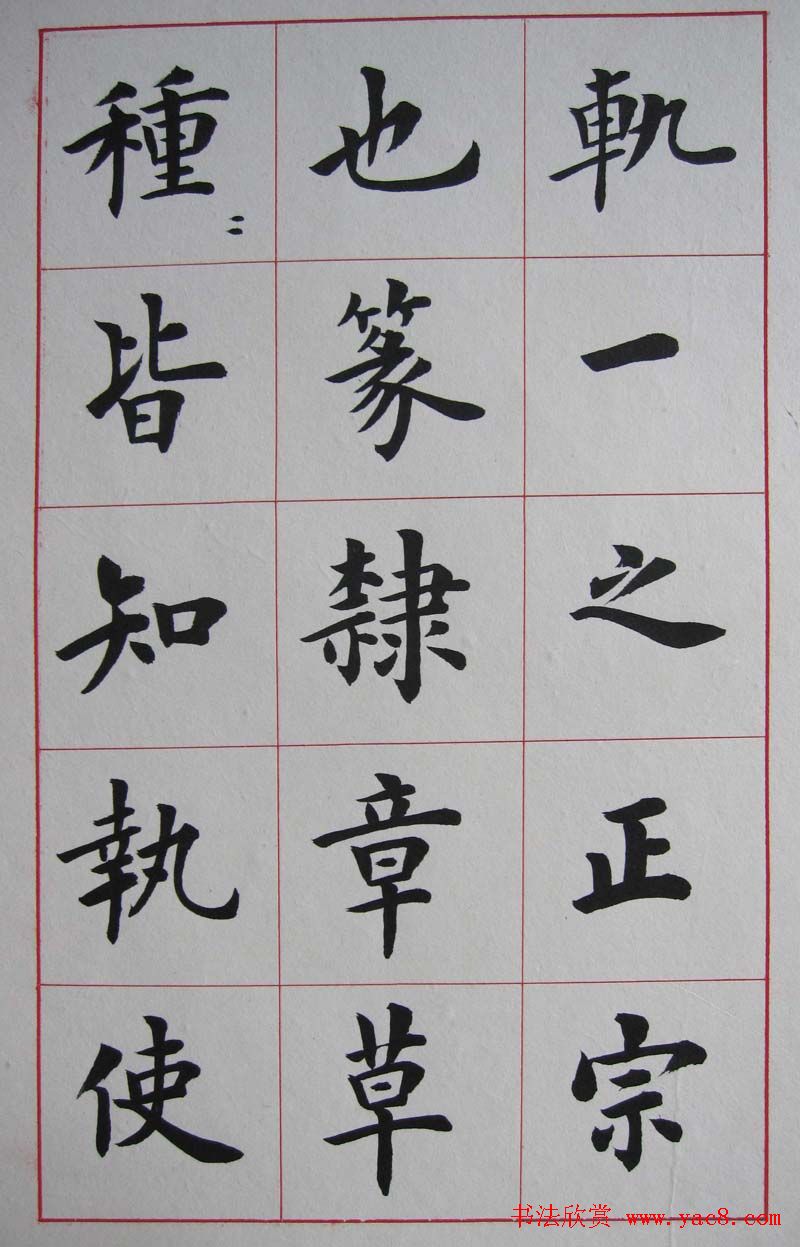 軌一之正宗
也篆隸章草
種〻皆知執使
书法欣赏 www.yac8.com